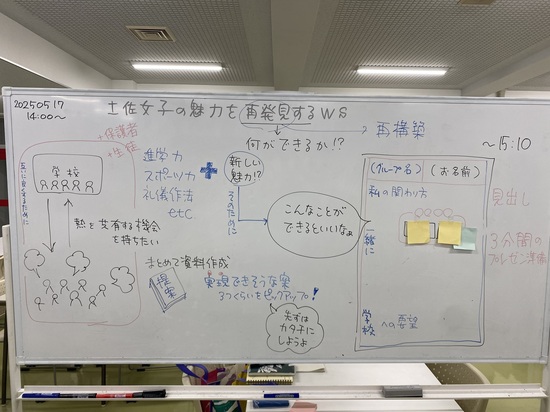 20250517
14:00〜
土佐女子の魅力を再発見するWS
再構築
何ができるか!?
〜15:10
+保護者
+生徒
学校
進学力
スポーツ力
礼儀作法
etc
+
新しい
魅力!?
そのために
熱を共有する機会
を持ちたい
こんなことが
できるといいなぁ
一緒に
(グループ名)
(お名前)
私の関わり方
見出し
3分間の
プレゼン準備
まとめて資料作成
提案
実現できそうな案
3つくらいをピックアップ!
まずは
カタチに
しようよ
学校への要望